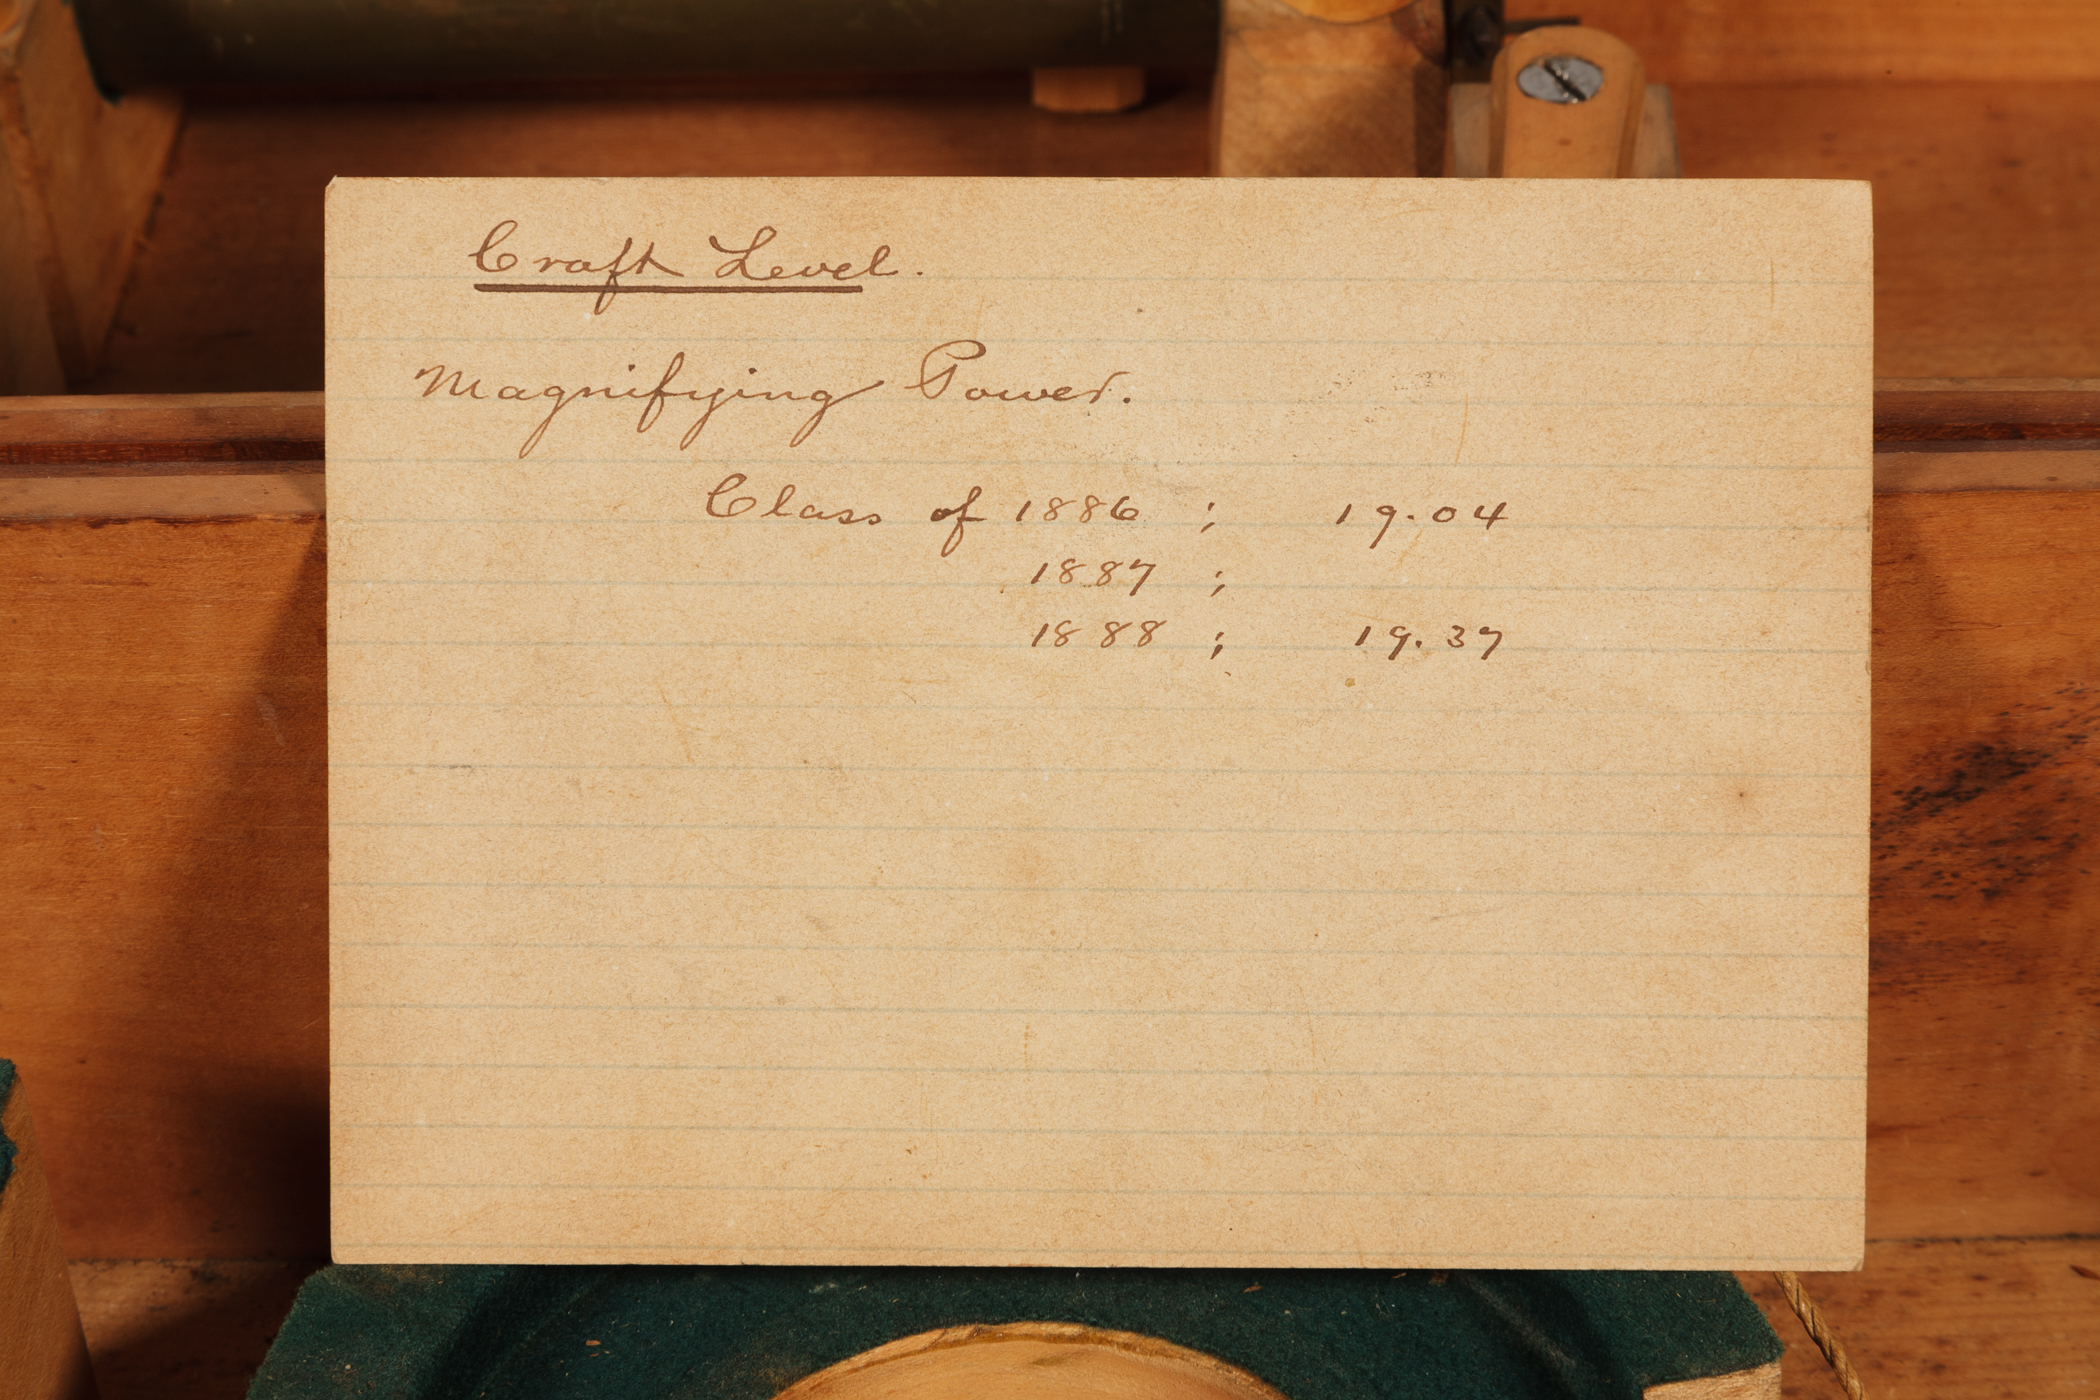 Craft Level.
Magnifying Power.
Class of 1886 ; 19.04
1887 ;
1888 ; 19.37